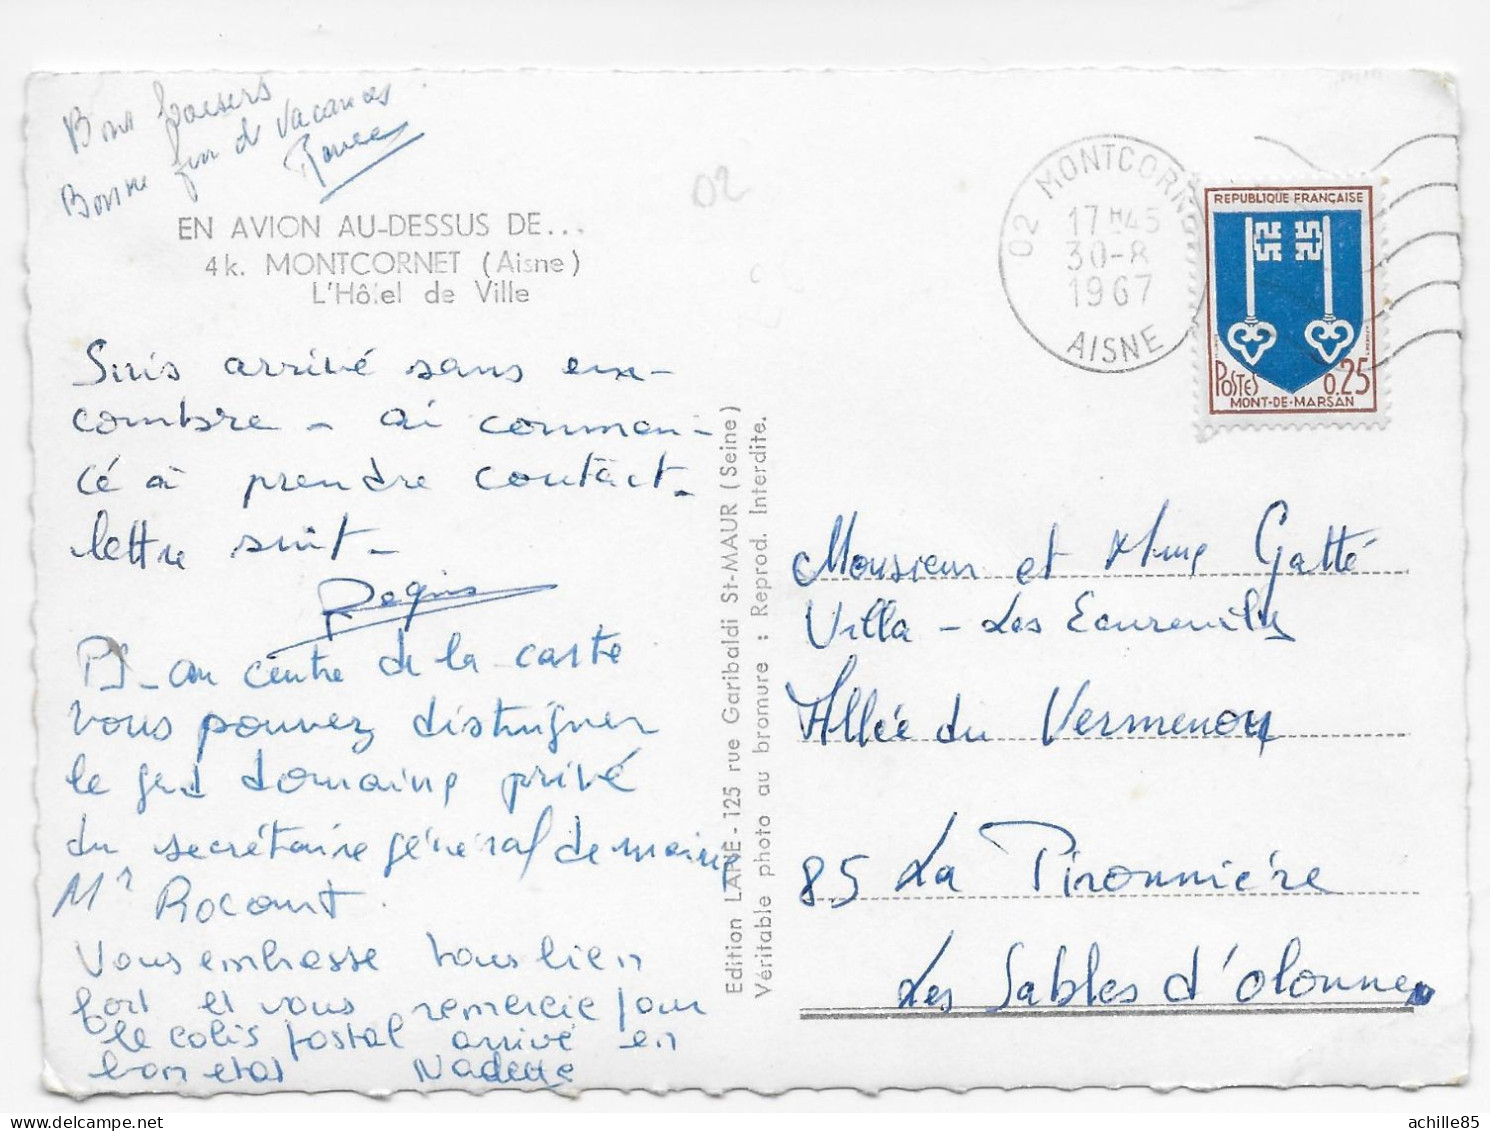 Bons baisers
Bonne fin de vacances
02
EN AVION AU-DESSUS DE...
4 k. MONTCORNET (Aisne)
L'Hôtel de Ville
Suis arrivé sans en-
combre - ai commen-
cé à prendre contact -
lettre suit -
Régis
PS - au centre de la carte
vous pouvez distinguer
le gd domaine privé
du secrétaire général de mairie
Mr Rocourt.
Vous embrasse tous bien
fort et vous remercie pour
le colis postal arrivé en
bon etat Nadette
Edition LAPIE - 125 rue Garibaldi St-MAUR (Seine)
Véritable photo au bromure : Reprod. Interdite.
02 MONTCORNET
17H45
30-8
1967
AISNE
REPUBLIQUE FRANÇAISE
POSTES 0.25
MONT-DE-MARSAN
Monsieur et Mme Gatté
Villa - Les Ecureuils
Allée du Vermenou
85 La Pironnière
Les Sables d'Olonne
achille85